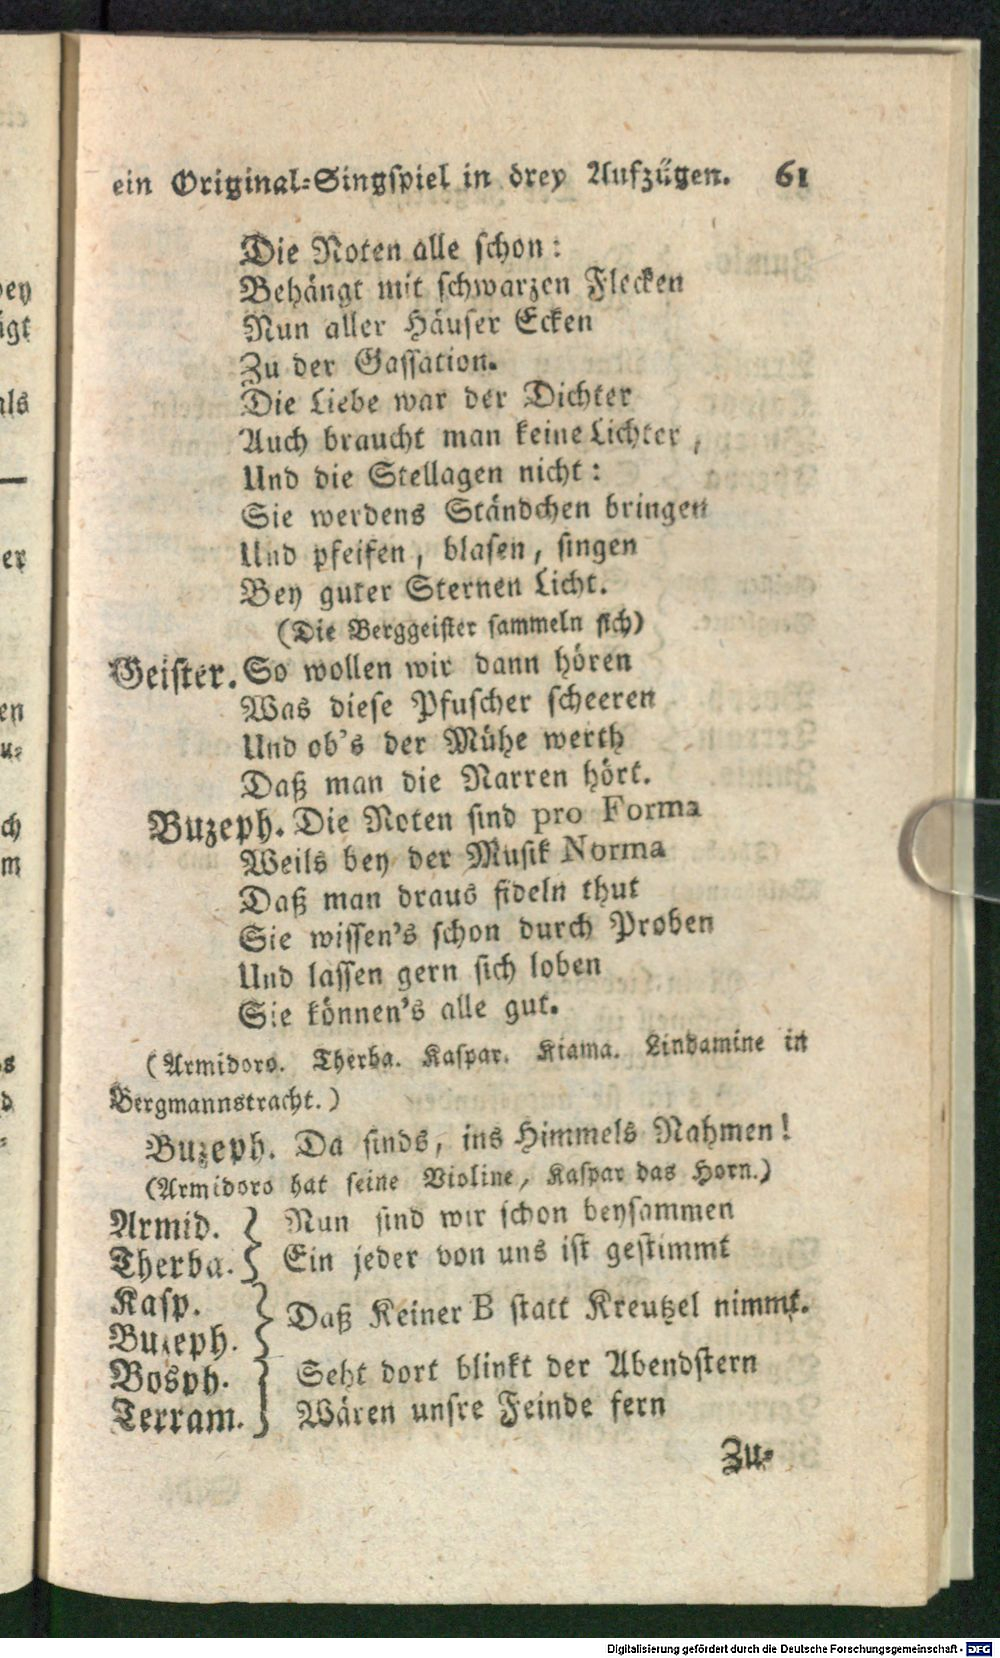 ein Original-Singspiel in drey Aufzügen. 61
Die Noten alle schon:
Behängt mit schwarzen Flecken
Nun aller Häuser Ecken
Zu der Gassation.
Die Liebe war der Dichter
Auch braucht man keine Lichter,
Und die Stellagen nicht:
Sie werdens Ständchen bringen
Und pfeifen, blasen, singen
Bey guter Sternen Licht.
(Die Berggeister sammeln sich)
Geister. So wollen wir dann hören
Was diese Pfuscher scheeren
Und ob's der Mühe werth
Daß man die Narren hört.
Buzeph. Die Noten sind pro Forma
Weils bey der Musik Norma
Daß man draus fideln thut
Sie wissen's schon durch Proben
Und lassen gern sich loben
Sie können's alle gut.
(Armidoro. Therba. Kaspar. Kiama. Lindamine in
Bergmannstracht.)
Buzeph. Da sinds, ins Himmels Nahmen!
(Armidoro hat seine Violine, Kaspar das Horn.)
Armid. } Nun sind wir schon beysammen
Therba. } Ein jeder von uns ist gestimmt
Kasp. }
Buzeph. } Daß Keiner B statt Kreutzel nimmt.
Bosph. } Seht dort blinkt der Abendstern
Terram. } Wären unsre Feinde fern
Zu-
ey
igt
als
er
en
u-
ch
m
s
d
-
Digitalisierung gefördert durch die Deutsche Forschungsgemeinschaft - DFG